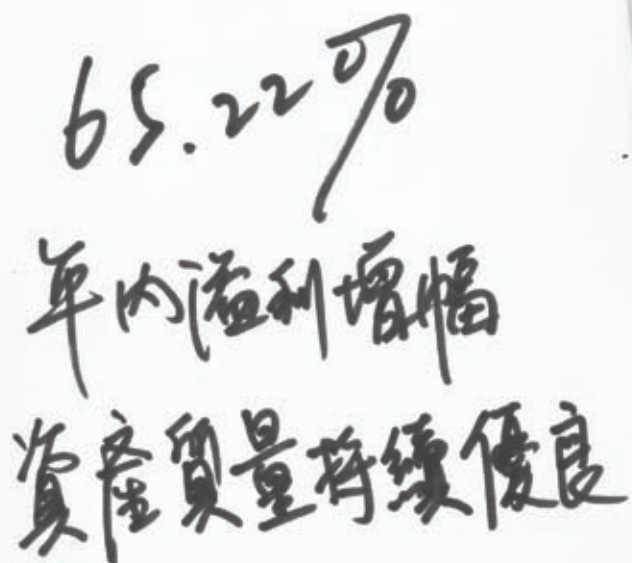 65.22%
年内溢利增幅
資產質量持續優良